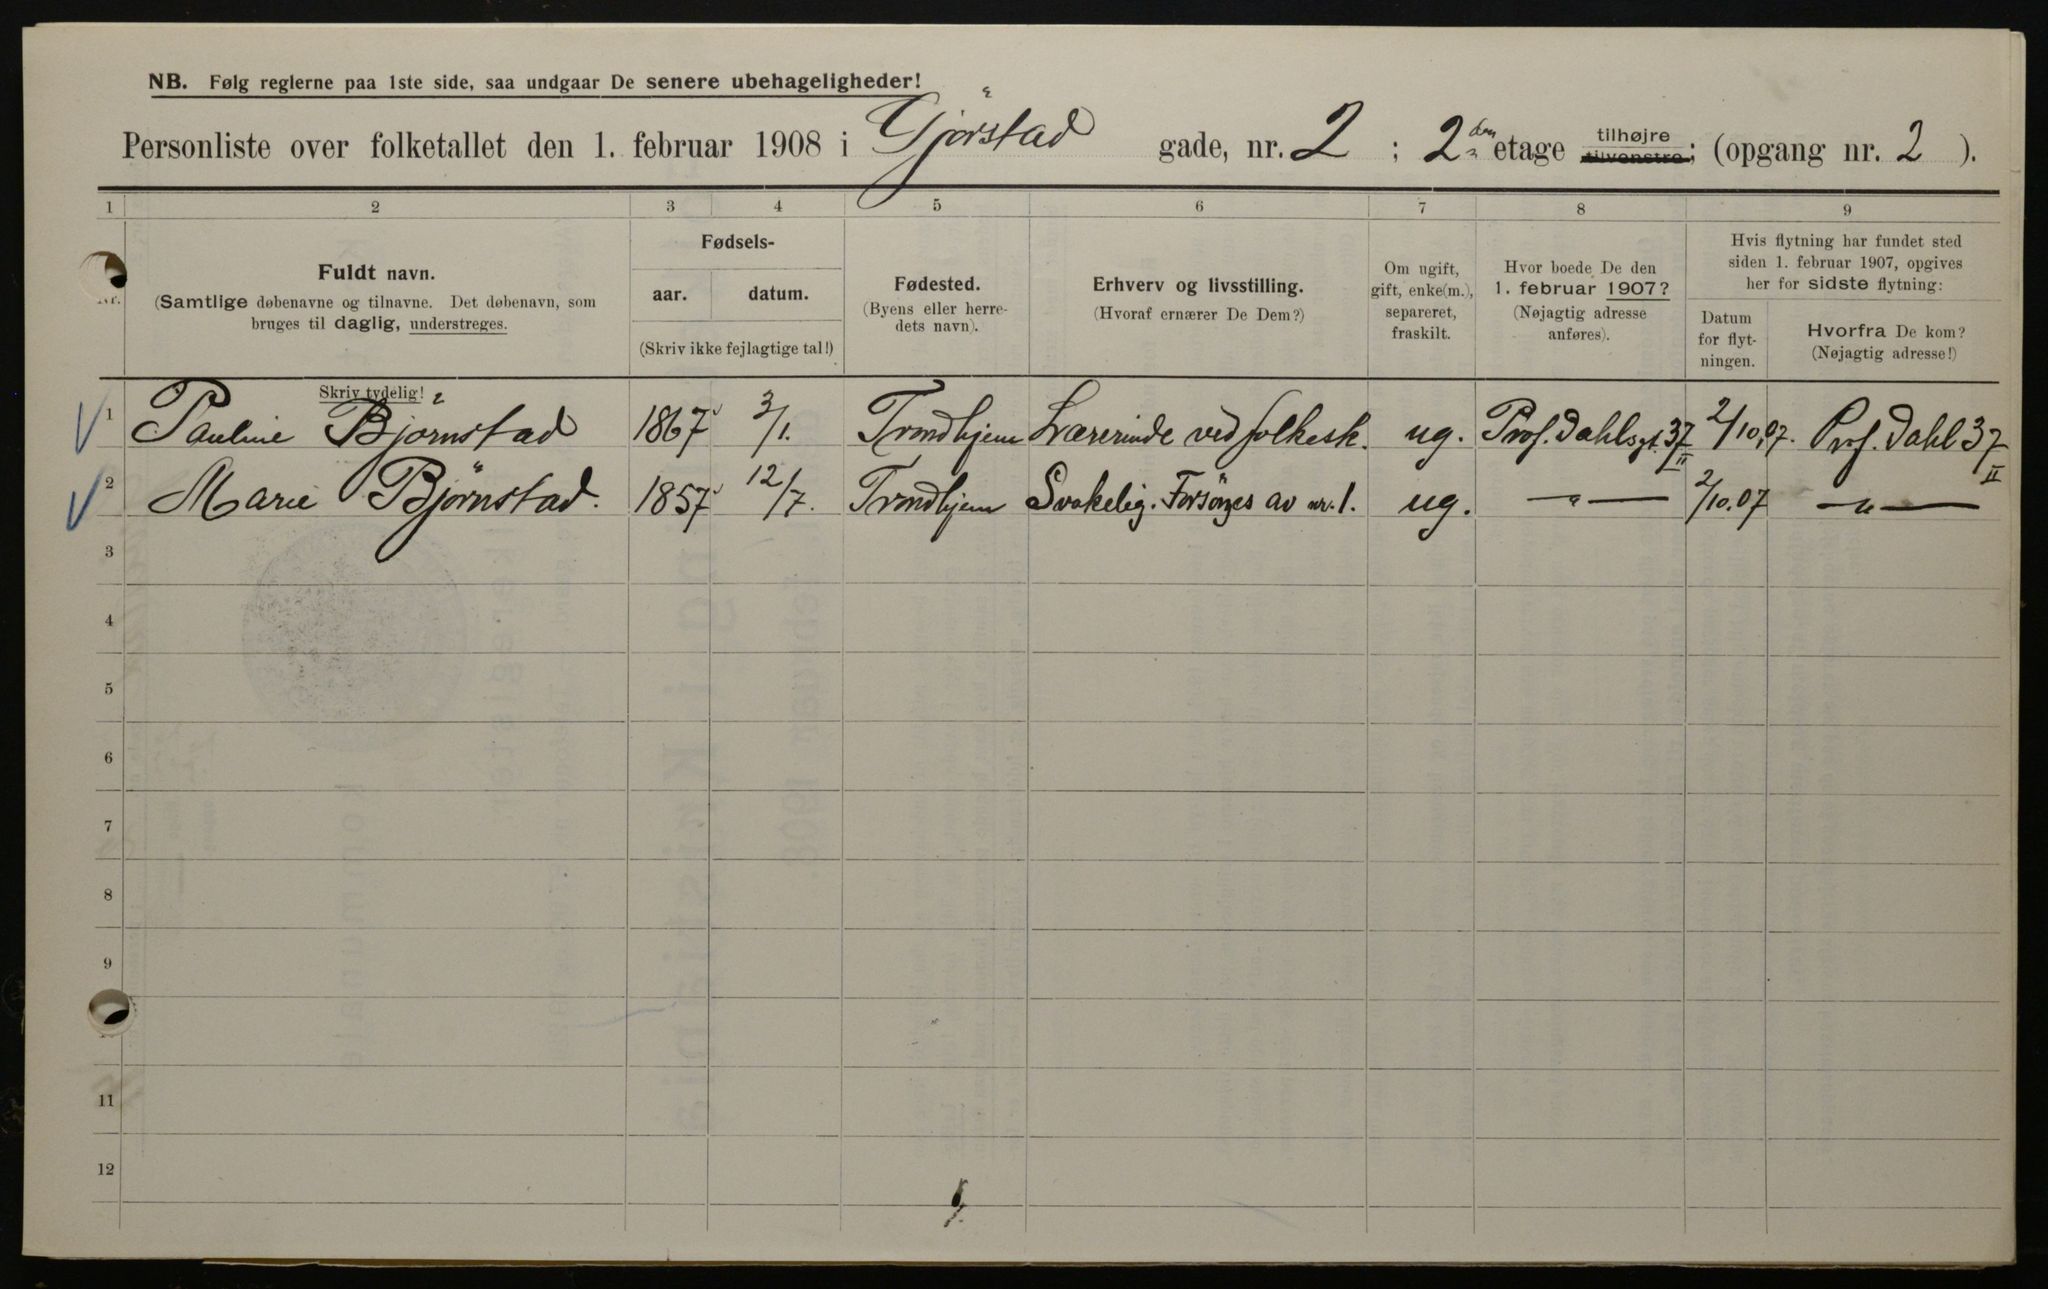 NB. Følg reglerne paa 1ste side, saa undgaar De senere ubehageligheder!
Personliste over folketallet den 1. februar 1908 i Gjørstad gade, nr. 2 ; 2den etage tilhøjre tilvenstre; (opgang nr. 2 ).
1 2 3 4 5 6 7 8 9
Nr.
Fuldt navn.
(Samtlige døbenavne og tilnavne. Det døbenavn, som
bruges til daglig, understreges.
Skriv tydelig!
Fødsels-
aar. datum.
(Skriv ikke fejlagtige tal!)
Fødested.
(Byens eller herre-
dets navn).
Erhverv og livsstilling.
(Hvoraf ernærer De Dem?)
Om ugift,
gift, enke(m.),
separeret,
fraskilt.
Hvor boede De den
1. februar 1907?
(Nøjagtig adresse
anføres).
Hvis flytning har fundet sted
siden 1. februar 1907, opgives
her for sidste flytning:
Datum
for flyt-
ningen.
Hvorfra De kom?
(Nøjagtig adresse!)
1 Pauline Bjørnstad 1867 3/1. Trondhjem Lærerinde ved folkesk. ug. Prof. Dahlsgt. 37 II 2/10.07. Prof. Dahl 37 II
2 Marie Bjørnstad. 1857 12/7. Trondhjem Svakelig. Forsørges av nr. 1. ug. —„— 2/10.07 —„—
3
4
5
6
7
8
9
11
12